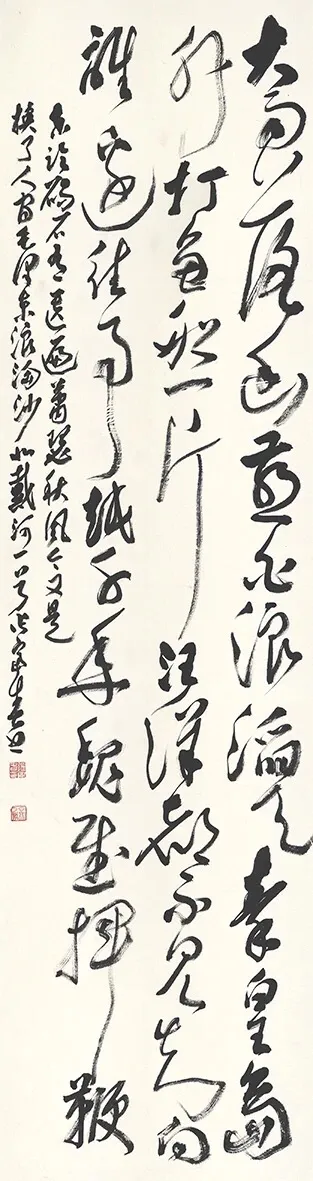 大雨落幽燕白浪滔天秦皇島
外打魚船一片汪洋都不見知向
誰邊往事越千年魏武揮鞭
東臨碣石有遺篇蕭瑟秋風今又是
換了人間毛澤東浪淘沙北戴河一首